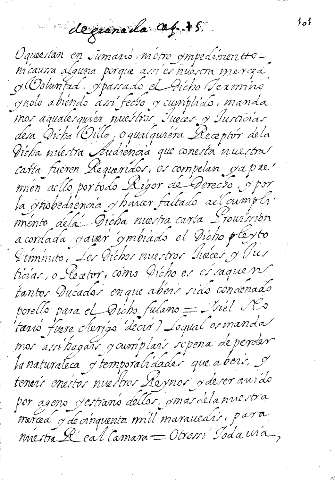 de granada. Cap. 45.
O questan en Sumario, ni otro ynpedimento
ni causa alguna porque assi es nuestra merced
y Voluntad, y passado el Dicho Termino
y no lo abiendo assi fecho y cumplido, manda
mos a qualesquier nuestros Jueces y Justicias
desa Dicha Villa, o qualquiera Receptor de la
Dicha nuestra Audiencia que con esta nuestra
carta fueren Requeridos, os compelan y apre
mien a ello por todo Rigor de Derecho, y por
la ynobediencia y haver faltado a el cumpli
miento de la Dicha nuestra carta Provission
acordada y aver ymbiado el Dicho pleyto
Diminuto, Les Dichos nuestros Jueces y Jus
ticias, o Receptor, como Dicho es es saquen
tantos Ducados en que abeis sido condenado
por ello para el Dicho fulano = Si el No
tario fuere clerigo decid) Lo qual os manda
mos assi hagais y cumplais so pena de perder
la naturaleca y temporalidades que abeis, y
teneis en estos nuestros Reynos y de ser avido
por ageno y estraño dellos, y mas de la nuestra
merced y de cinquenta mil maravedis, para
nuestra Real Camara = Otrossi todavia,